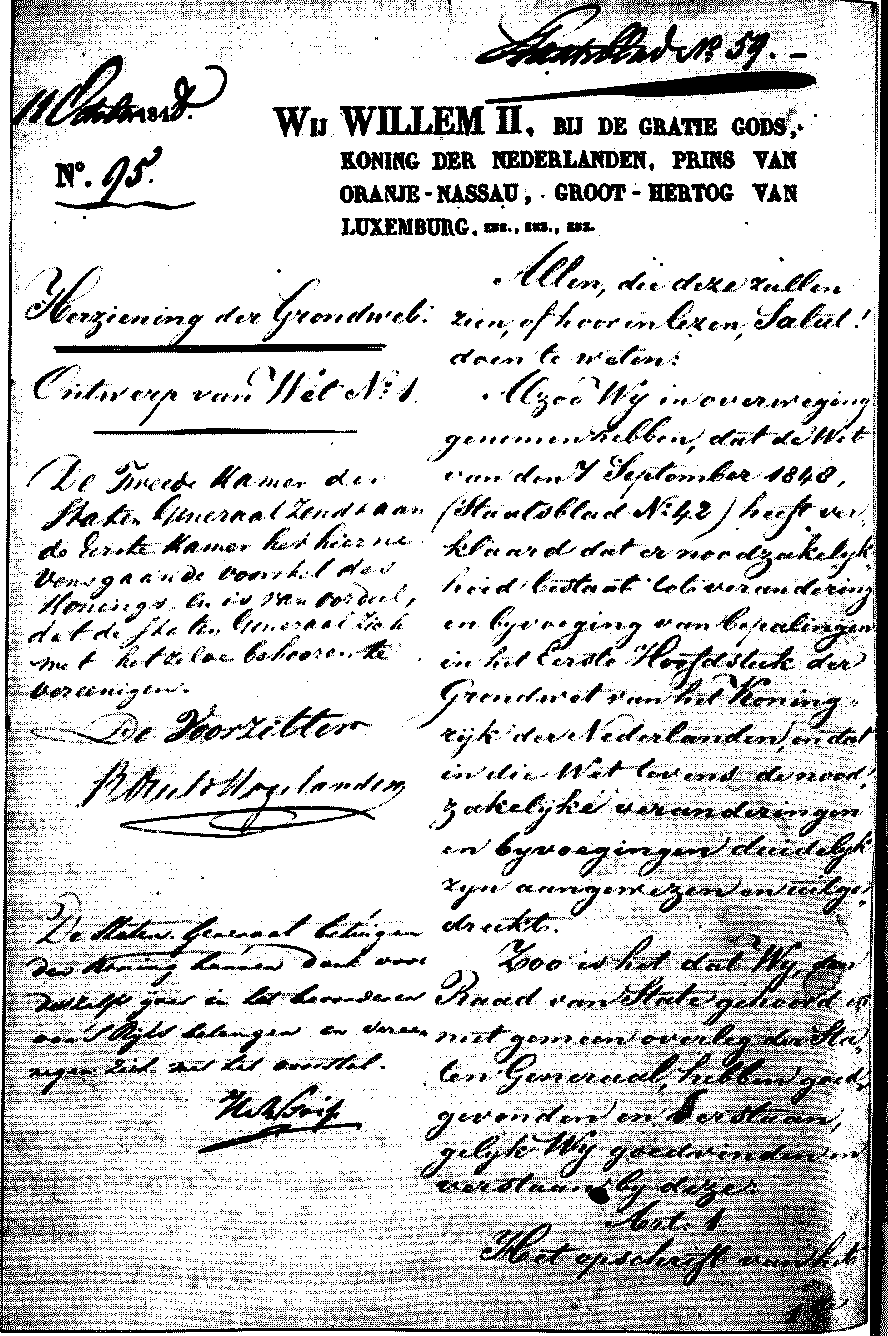 Staatsblad No. 59. –
11 October 1848.
No. 95.
WIJ WILLEM II, BIJ DE GRATIE GODS,
KONING DER NEDERLANDEN, PRINS VAN
ORANJE-NASSAU, GROOT-HERTOG VAN
LUXEMBURG, ENZ., ENZ., ENZ.
Herziening der Grondwet.
Ontwerp van Wet No. 1.
De Tweede Kamer der
Staten Generaal zendt aan
de Eerste Kamer het hierne
vensgaande voorstel des
Konings, en is van oordeel,
dat de Staten Generaal zich
met hetzelve behooren te
vereenigen.
De Voorzitter
De Staten Generaal betuigen
den Koning hunnen dank voor
deszelfs ijver in het bevorderen
van 's Rijks belangen en vereen
igen zich met het voorstel.
Allen, die deze zullen
zien, of hooren lezen, Salut!
doen te weten:
Alzoo Wij in overweging
genomen hebben, dat de Wet
van den 7 September 1848,
(Staatsblad No. 42) heeft ver
klaard dat er noodzakelijk
heid bestaat tot verandering
en bijvoeging van bepalingen
in het Eerste Hoofdstuk der
Grondwet van het Koning
rijk der Nederlanden, en dat
in die Wet tevens de nood
zakelijke veranderingen
en bijvoegingen duidelijk
zijn aangewezen en uitge
drukt.
Zoo is het dat Wij, den
Raad van State gehoord en
met gemeen overleg der Sta
ten Generaal, hebben goed
gevonden en verstaan,
gelijk Wij goedvinden en
verstaan bij deze:
Art. 1
Het opschrift van het